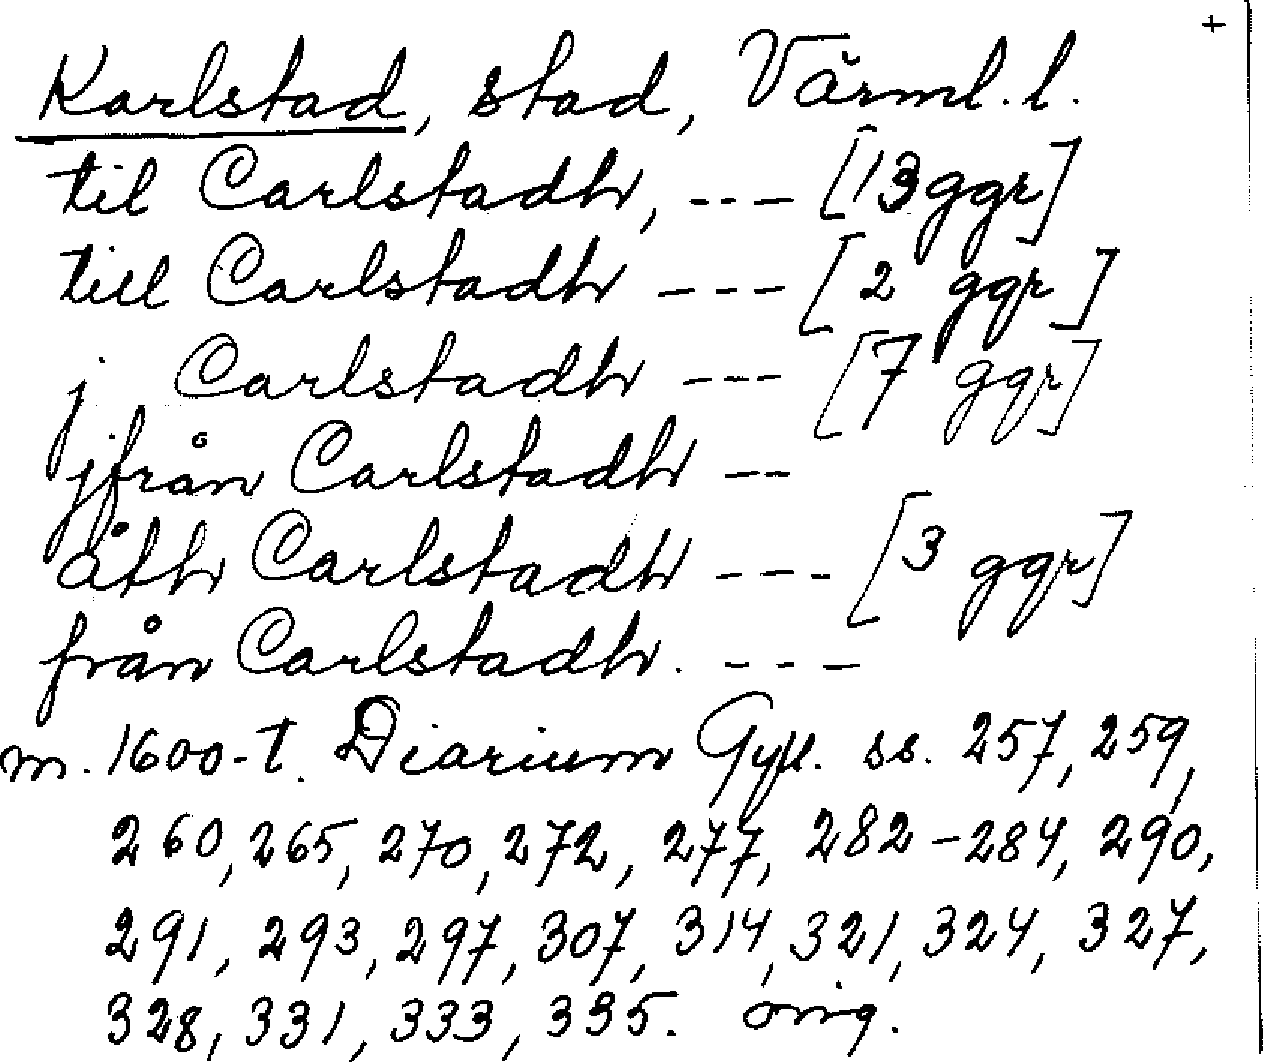 +
Karlstad, stad, Värml. l.
til Carlstadh, --- [13 ggr]
till Carlstadh --- [2 ggr]
j Carlstadh --- [7 ggr]
jfrån Carlstadh --
åth Carlstadh --- [3 ggr]
från Carlstadh. ---
m. 1600-t. Diarium Gyll. ss. 257, 259,
260, 265, 270, 272, 277, 282-284, 290,
291, 293, 297, 307, 314, 321, 324, 327,
328, 331, 333, 335. orig.